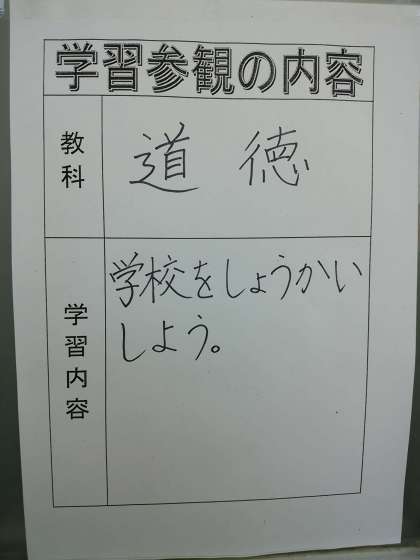 学習参観の内容
教科
道徳
学習内容
学校をしょうかい
しよう。